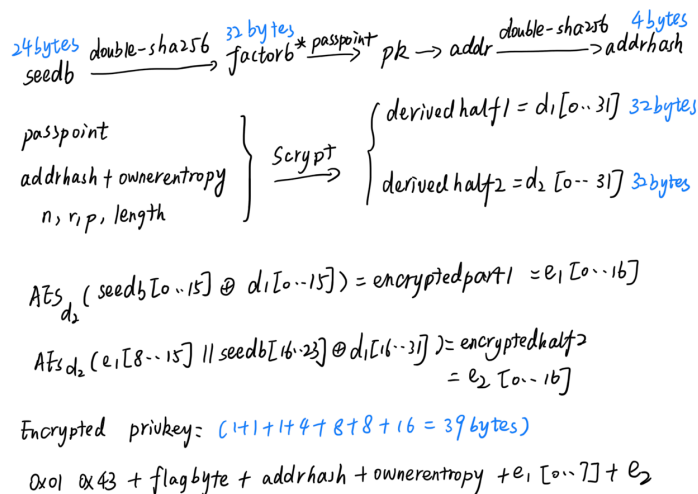 24bytes double-sha256 32bytes passpoint double-sha256 4bytes
seedb → factorb* → pk → addr → addrhash
passpoint
addrhash + ownerentropy
n, r, p, length
Scrypt
derivedhalf1 = d1[0..31] 32bytes
derivedhalf2 = d2 [0--31] 32bytes
AES_d2 (seedb[0..15] ⊕ d1[0--15]) = encryptedpart1 = e1[0--16]
AES_d2 (e1[8--15] || seedb[16..23] ⊕ d1[16--31]) = encryptedhalf2
= e2 [0--16]
Encrypted privkey: (1+1+1+4+8+8+16=39bytes)
0x01 0x43 + flagbyte + addrhash + ownerentropy + e1 [0--7] + e2